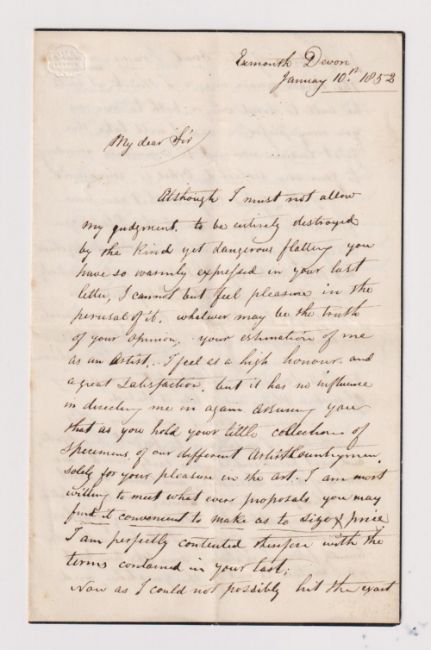 Exmouth Devon
January 10th 1853
My dear Sir
Although I must not allow
my judgment, to be entirely destroyed
by the kind yet dangerous flattery you
have so warmly expressed in your last
letter, I cannot but feel pleasure in the
perusal of it. whatever may be the truth
of your opinion. your estimation of me
as an Artist. I feel as a high honour. and
a great Satisfaction. but it has no influence
in deciding me in again assuring you
that as you hold your little collection of
Specimens of our different Artist Countrymen,
solely for your pleasure in the art. I am most
willing to meet what ever proposals you may
find it convenient to make as to Size & price.
I am perfectly contented therefore with the
terms contained in your last;
Now as I could not possibly hit the exact